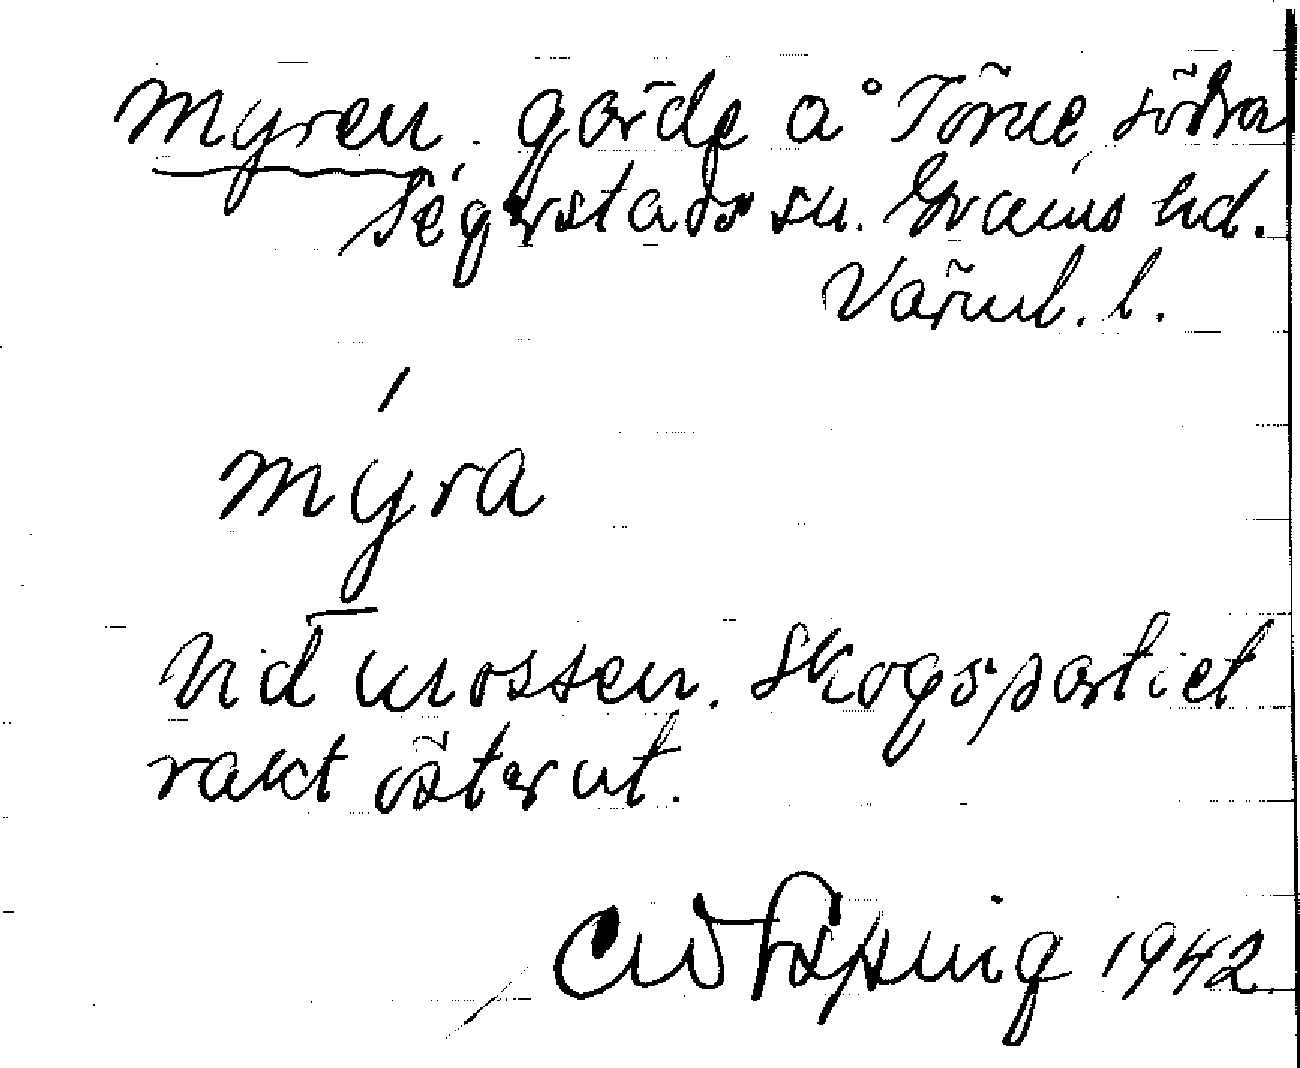 Myren, gärde å Törne, södra
Segerstads sn. Grums hd.
Värml. l.
mýra
Vid mossen. Skogspartiet
rakt österut.
1942